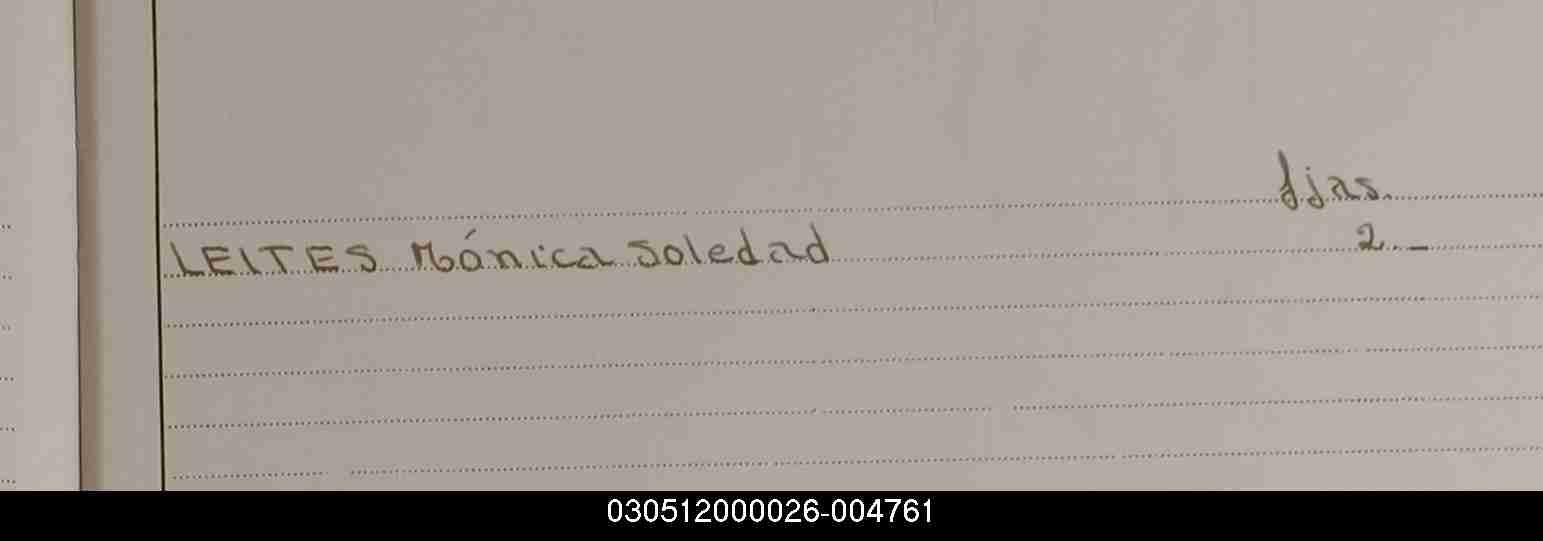 fjas.
LEITES Mónica Soledad 2. _
030512000026-004761